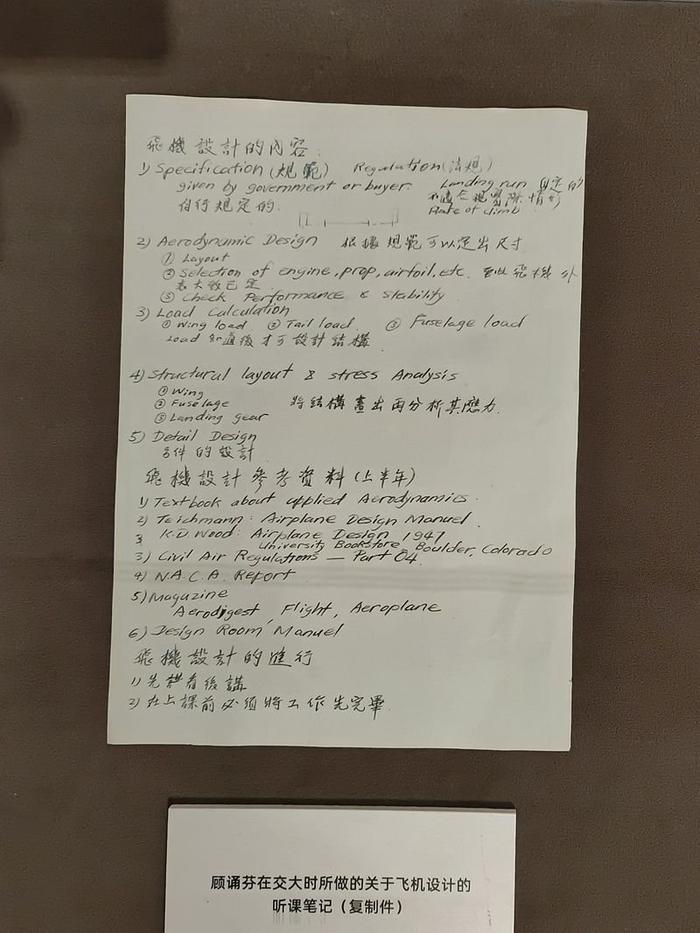 飛機設計的內容:
1) Specification (規範) Regulation (法規)
given by government or buyer. Landing run 自定的
自行規定的. 實際情形
Rate of climb
2) Aerodynamic Design 根據規範可以定出尺寸
① Layout
② Selection of engine, prop, airfoil, etc. 至此飛機外
表大致已定
③ Check Performance & Stability
3) Load Calculation
① Wing load ② Tail load ③ Fuselage load
Load 知道後才可設計結構.
4) Structural layout & stress Analysis
① Wing
② Fuselage 將結構畫出再分析其應力.
③ Landing gear
5) Detail Design
各件的設計
飛機設計參考資料(上半年)
1) Textbook about applied Aerodynamics.
2) Teichmann: Airplane Design Manuel.
3 K.D. Wood: Airplane Design 1947
University Bookstore, Boulder, Colorado
3) Civil Air Regulations — Part 04.
4) N.A.C.A. Report
5) Magazine
Aerodigest, Flight, Aeroplane
6) Design Room Manuel
飛機設計的進行
1) 先看後講
2) 在上課前必須將工作先完畢.
顾诵芬在交大时所做的关于飞机设计的
听课笔记（复制件）